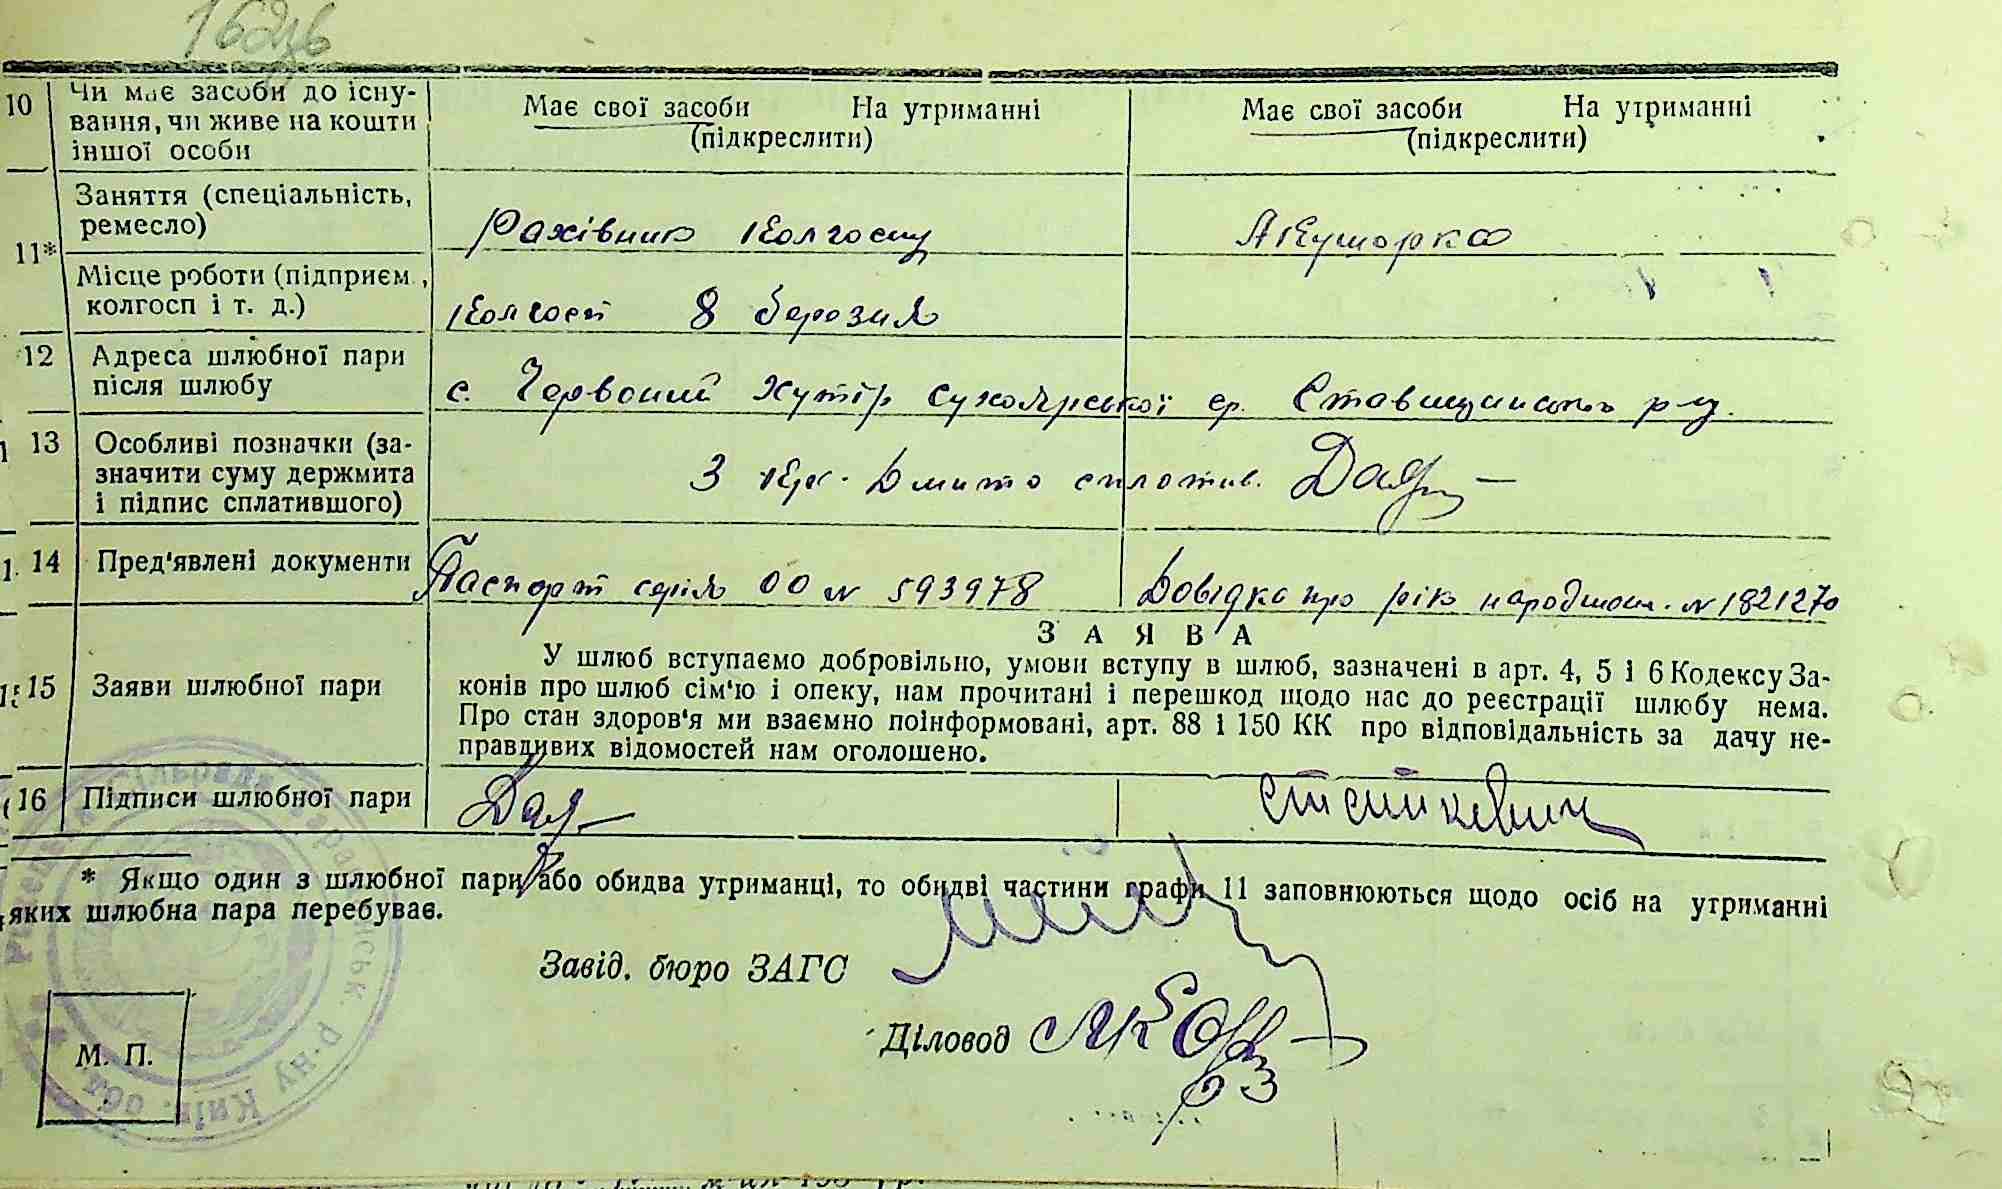 16 зв
10 Чи має засоби до існу-
вання, чи живе на кошти
іншої особи
Має свої засоби На утриманні
(підкреслити)
Має свої засоби На утриманні
(підкреслити)
11* Заняття (спеціальність,
ремесло)
Рахівник колгоспу
Акушорка
Місце роботи (підприєм.,
колгосп і т. д.)
колгосп 8 березня
12 Адреса шлюбної пари
після шлюбу
с. Червоний Хутір Сухоярської ср. Ставищанськ р-ну.
13 Особливі позначки (за-
значити суму держмита
і підпис сплатившого)
3 крб. Д мито сплотив.
14 Пред'явлені документи
Паспорт серія 00 № 593978
Довідка про рік народжен. № 1821270
ЗАЯВА
15 Заяви шлюбної пари
У шлюб вступаємо добровільно, умови вступу в шлюб, зазначені в арт. 4, 5 і 6 Кодексу За-
конів про шлюб сім'ю і опеку, нам прочитані і перешкод щодо нас до реєстрації шлюбу нема.
Про стан здоров'я ми взаємно поінформовані, арт. 88 і 150 КК про відповідальність за дачу не-
правдивих відомостей нам оголошено.
16 Підписи шлюбної пари
* Якщо один з шлюбної пари або обидва утриманці, то обидві частини графи 11 заповнюються щодо осіб на утриманні
яких шлюбна пара перебуває.
Завід. бюро ЗАГС
Діловод
М. П.
р-ну Київ. обл.